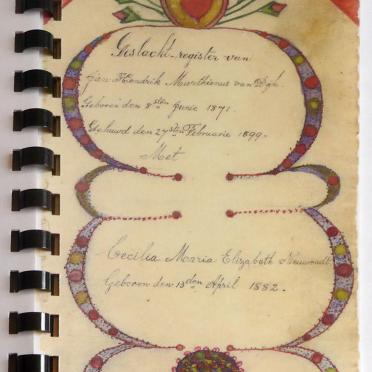 Geslacht-register van
Jan Hendrik van Wyk
Geboren den 8ste Junie 1871.
Gehuwd den 27sten Februarie 1899.
Met
Cecilia Maria Elizabeth Nieuwoudt
Geboren den 13den April 1882.